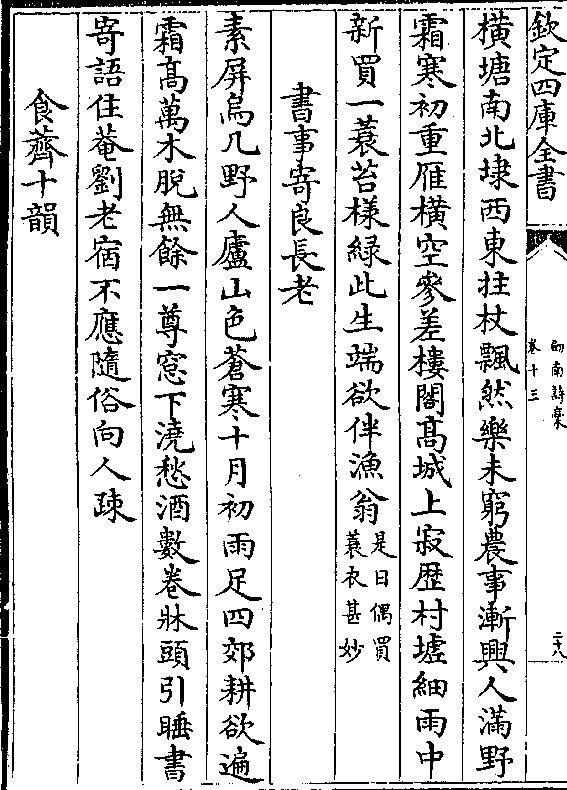 欽定四庫全書
劍南詩槀
卷十三
二十八
橫塘南北埭西東拄杖飄然樂未窮農事漸興人滿野
霜寒初重雁橫空參差樓閣髙城上寂歴村墟細雨中
新買一蓑苔様緑此生端欲伴漁翁是日偶買
蓑衣甚妙
書事寄良長老
素屏烏几野人廬山色蒼寒十月初雨足四郊耕欲遍
霜髙萬木脫無餘一尊窓下澆愁酒數卷牀頭引睡書
寄語住菴劉老宿不應隨俗向人疎
食薺十韻